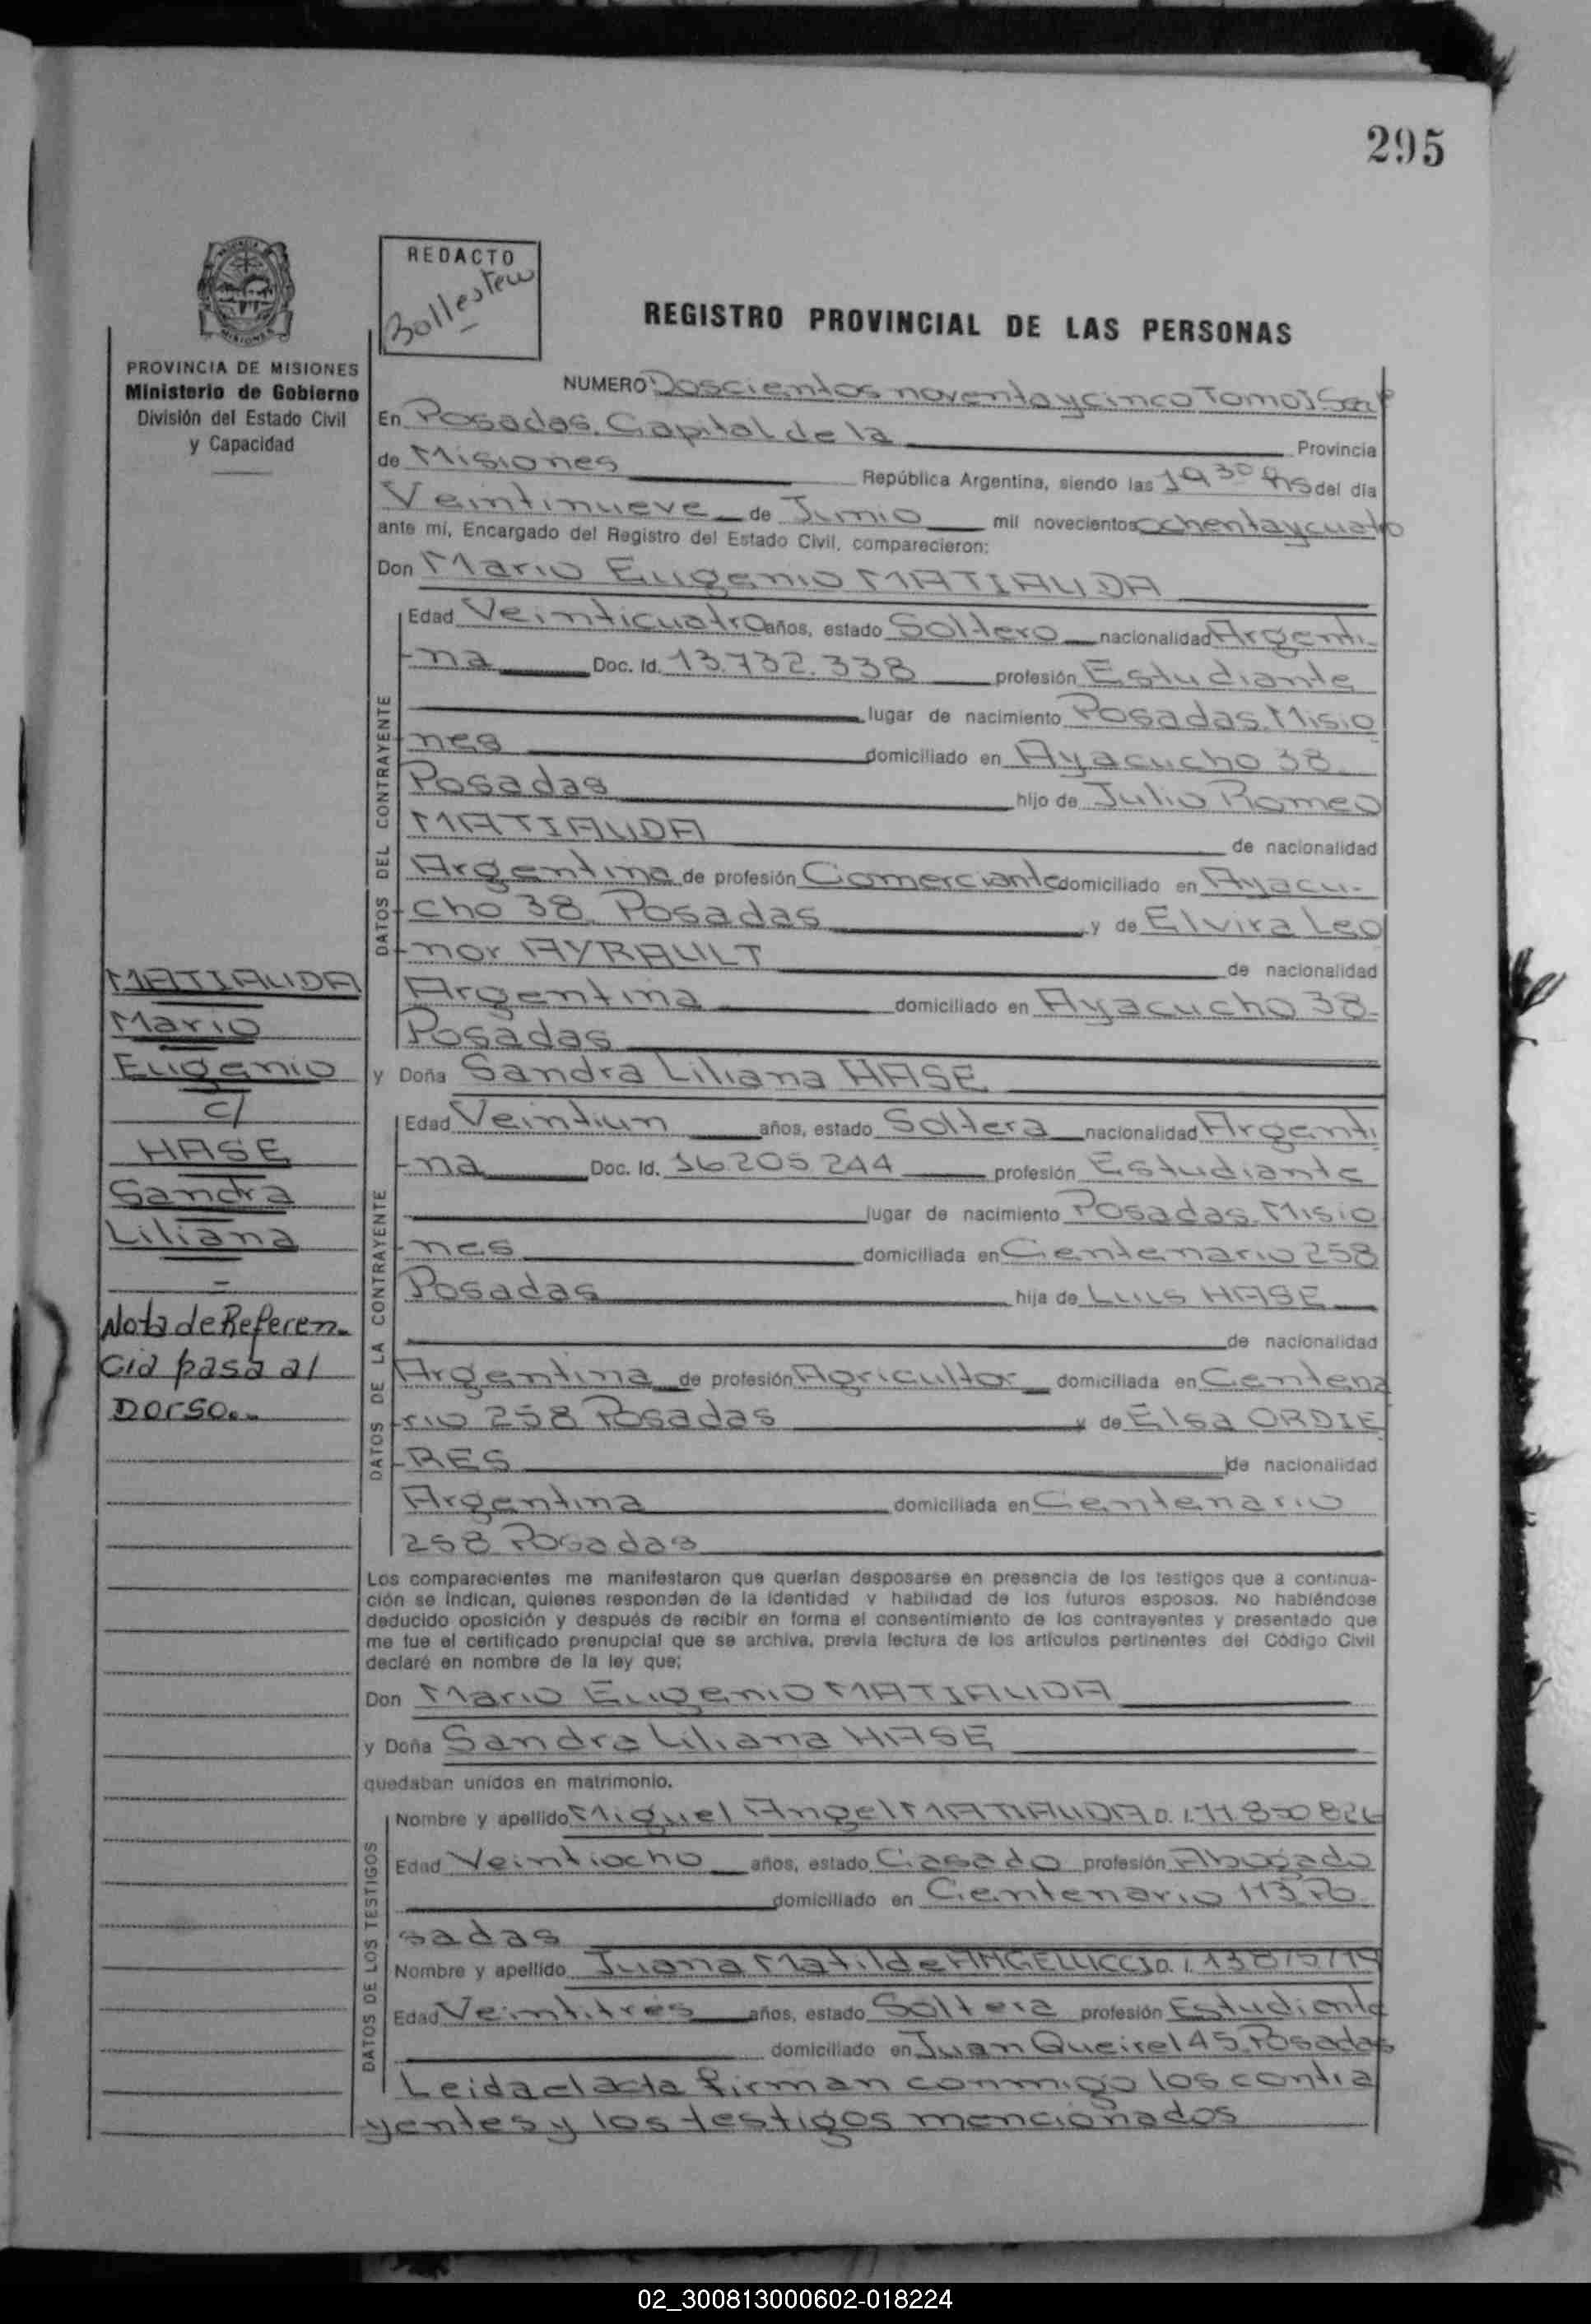 295
REDACTO
REGISTRO PROVINCIAL DE LAS PERSONAS
PROVINCIA DE MISIONES
Ministerio de Gobierno
División del Estado Civil
y Capacidad
MISIONES
NUMERO Doscientos noventa y cinco Tomo I
En Posadas, Capital de la Provincia
de Misiones República Argentina, siendo las 19 30 hs del día
Veintinueve de Junio mil novecientos ochenta y cuatro
ante mí, Encargado del Registro del Estado Civil, comparecieron:
Don Mario Eugenio MATIAUDA
DATOS DEL CONTRAYENTE
Edad Veinticuatro años, estado Soltero nacionalidad Argenti-
-na Doc. Id. 13.732.338 profesión Estudiante
lugar de nacimiento Posadas. Misio
nes domiciliado en Ayacucho 38.
Posadas hijo de Julio Romeo
MATIAUDA de nacionalidad
Argentina de profesión Comerciante domiciliado en Ayacu-
cho 38. Posadas y de Elvira Leo
-nor AYRAULT de nacionalidad
Argentina domiciliado en Ayacucho 38-
Posadas
y Doña Sandra Liliana HASE
DATOS DE LA CONTRAYENTE
Edad Veintiun años, estado Soltera nacionalidad Argenti
-na Doc. Id. 16.205.244 profesión Estudiante
lugar de nacimiento Posadas. Misio
-nes domiciliada en Centenario 258
Posadas hija de Luis HASE
de nacionalidad
Argentina de profesión Agricultor domiciliada en Centena
rio 258 Posadas y de Elsa ORDIE
-RES de nacionalidad
Argentina domiciliada en Centenario
258 Posadas
MATIAUDA
Mario
Eugenio
c/
HASE
Sandra
Liliana
=
Nota de Referen-
cia pasa al
Dorso..
Los comparecientes me manifestaron que querían desposarse en presencia de los testigos que a continua-
ción se indican, quienes responden de la identidad y habilidad de los futuros esposos. No habiéndose
deducido oposición y después de recibir en forma el consentimiento de los contrayentes y presentado que
me fue el certificado prenupcial que se archiva, previa lectura de los artículos pertinentes del Código Civil
declaré en nombre de la ley que;
Don Mario Eugenio MATIAUDA
y Doña Sandra Liliana HASE
quedaban unidos en matrimonio.
DATOS DE LOS TESTIGOS
Nombre y apellido Miguel Angel MATIAUDA D. I. 11.850826
Edad Veintiocho años, estado Casado profesión Abogado
domiciliado en Centenario 113 Po
sadas
Nombre y apellido Juana Matilde ANGELUCCI D. I.
Edad Veintitres años, estado Soltera profesión Estudiante
domiciliado en Juan Queirel 45. Posadas
Leida el acta firman conmigo los contra
yentes y los testigos mencionados
02_300813000602-018224